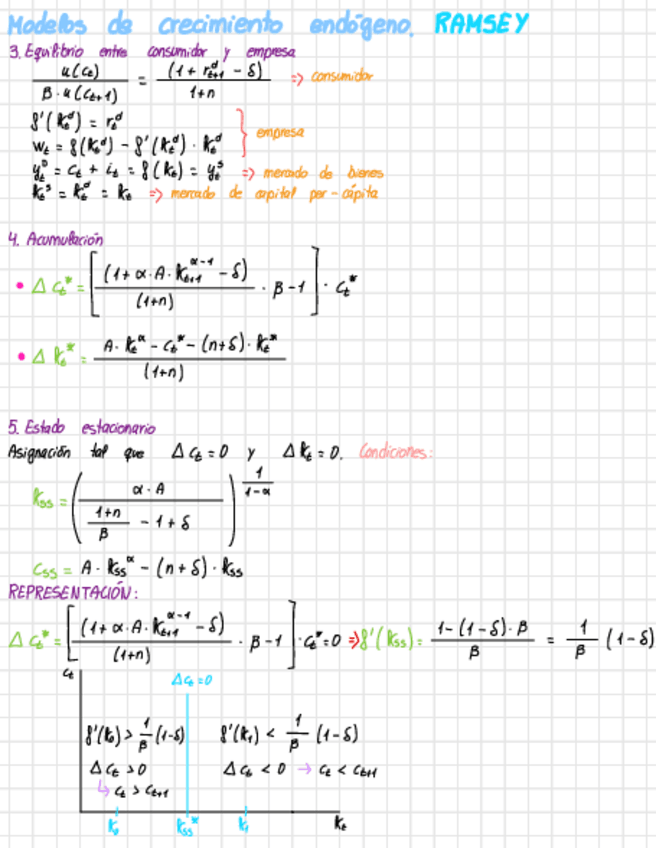 Modelos de crecimiento endógeno. RAMSEY
3. Equilibrio entre consumidor y empresa
u(c_t) / β·u(c_{t+1}) = (1+r^d_{t+1} - δ) / 1+n => consumidor
f'(k_t^d) = r_t^d
w_t = f(k_t^d) - f'(k_t^d)·k_t^d } empresa
y_t^D = c_t + i_t = f(k_t) = y_t^s => mercado de bienes
k_t^s = k_t^d = k_t => mercado de capital per-cápita
4. Acumulación
• Δ c_t* = [ (1+α·A·k_{t+1}^{α-1} - δ) / (1+n) · β-1 ] · c_t*
• Δ k_t* = A·k_t^α - c_t* - (n+δ)·k_t* / (1+n)
5. Estado estacionario
Asignación tal que Δc_t=0 y Δk_t=0. Condiciones:
k_ss = ( α·A / ( 1+n / β - 1+δ ) )^{1/1-α}
c_ss = A·k_ss^α - (n+δ)·k_ss
REPRESENTACIÓN:
Δ c_t* = [ (1+α·A·k_{t+1}^{α-1} - δ) / (1+n) · β-1 ] · c_t*=0 => f'(k_ss) = 1-(1-δ)·β / β = 1/β (1-δ)
c_t
Δc_t=0
f'(k_0) > 1/β (1-δ) f'(k_1) < 1/β (1-δ)
Δc_t > 0 Δc_t < 0 → c_t < c_{t+1}
↳ c_t > c_{t+1}
k_0 k_ss* k_1 k_t